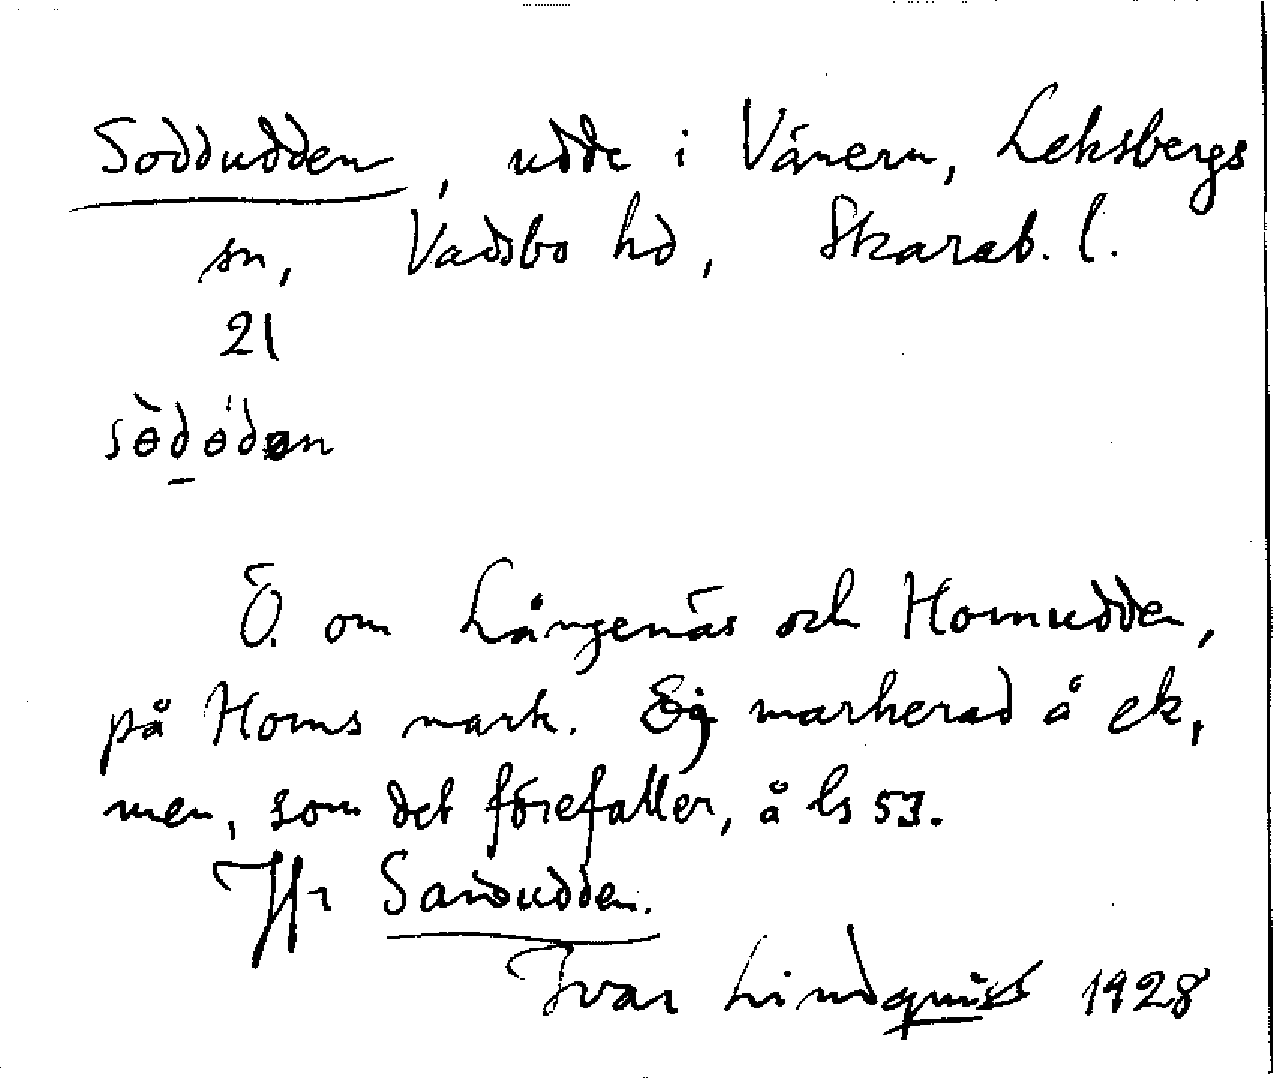 Soddudden, udde i Vänern, Leksbergs
sn, Vadsbo hd, Skarab. l.
21
sɵ̀dɵ́dən
Ö. om Långenäs och Hornudden,
på Horns mark. Ej markerad å ek,
men, som det förefaller, å ls 53.
Jfr Sandudden.
Ivar Lindquist 1928